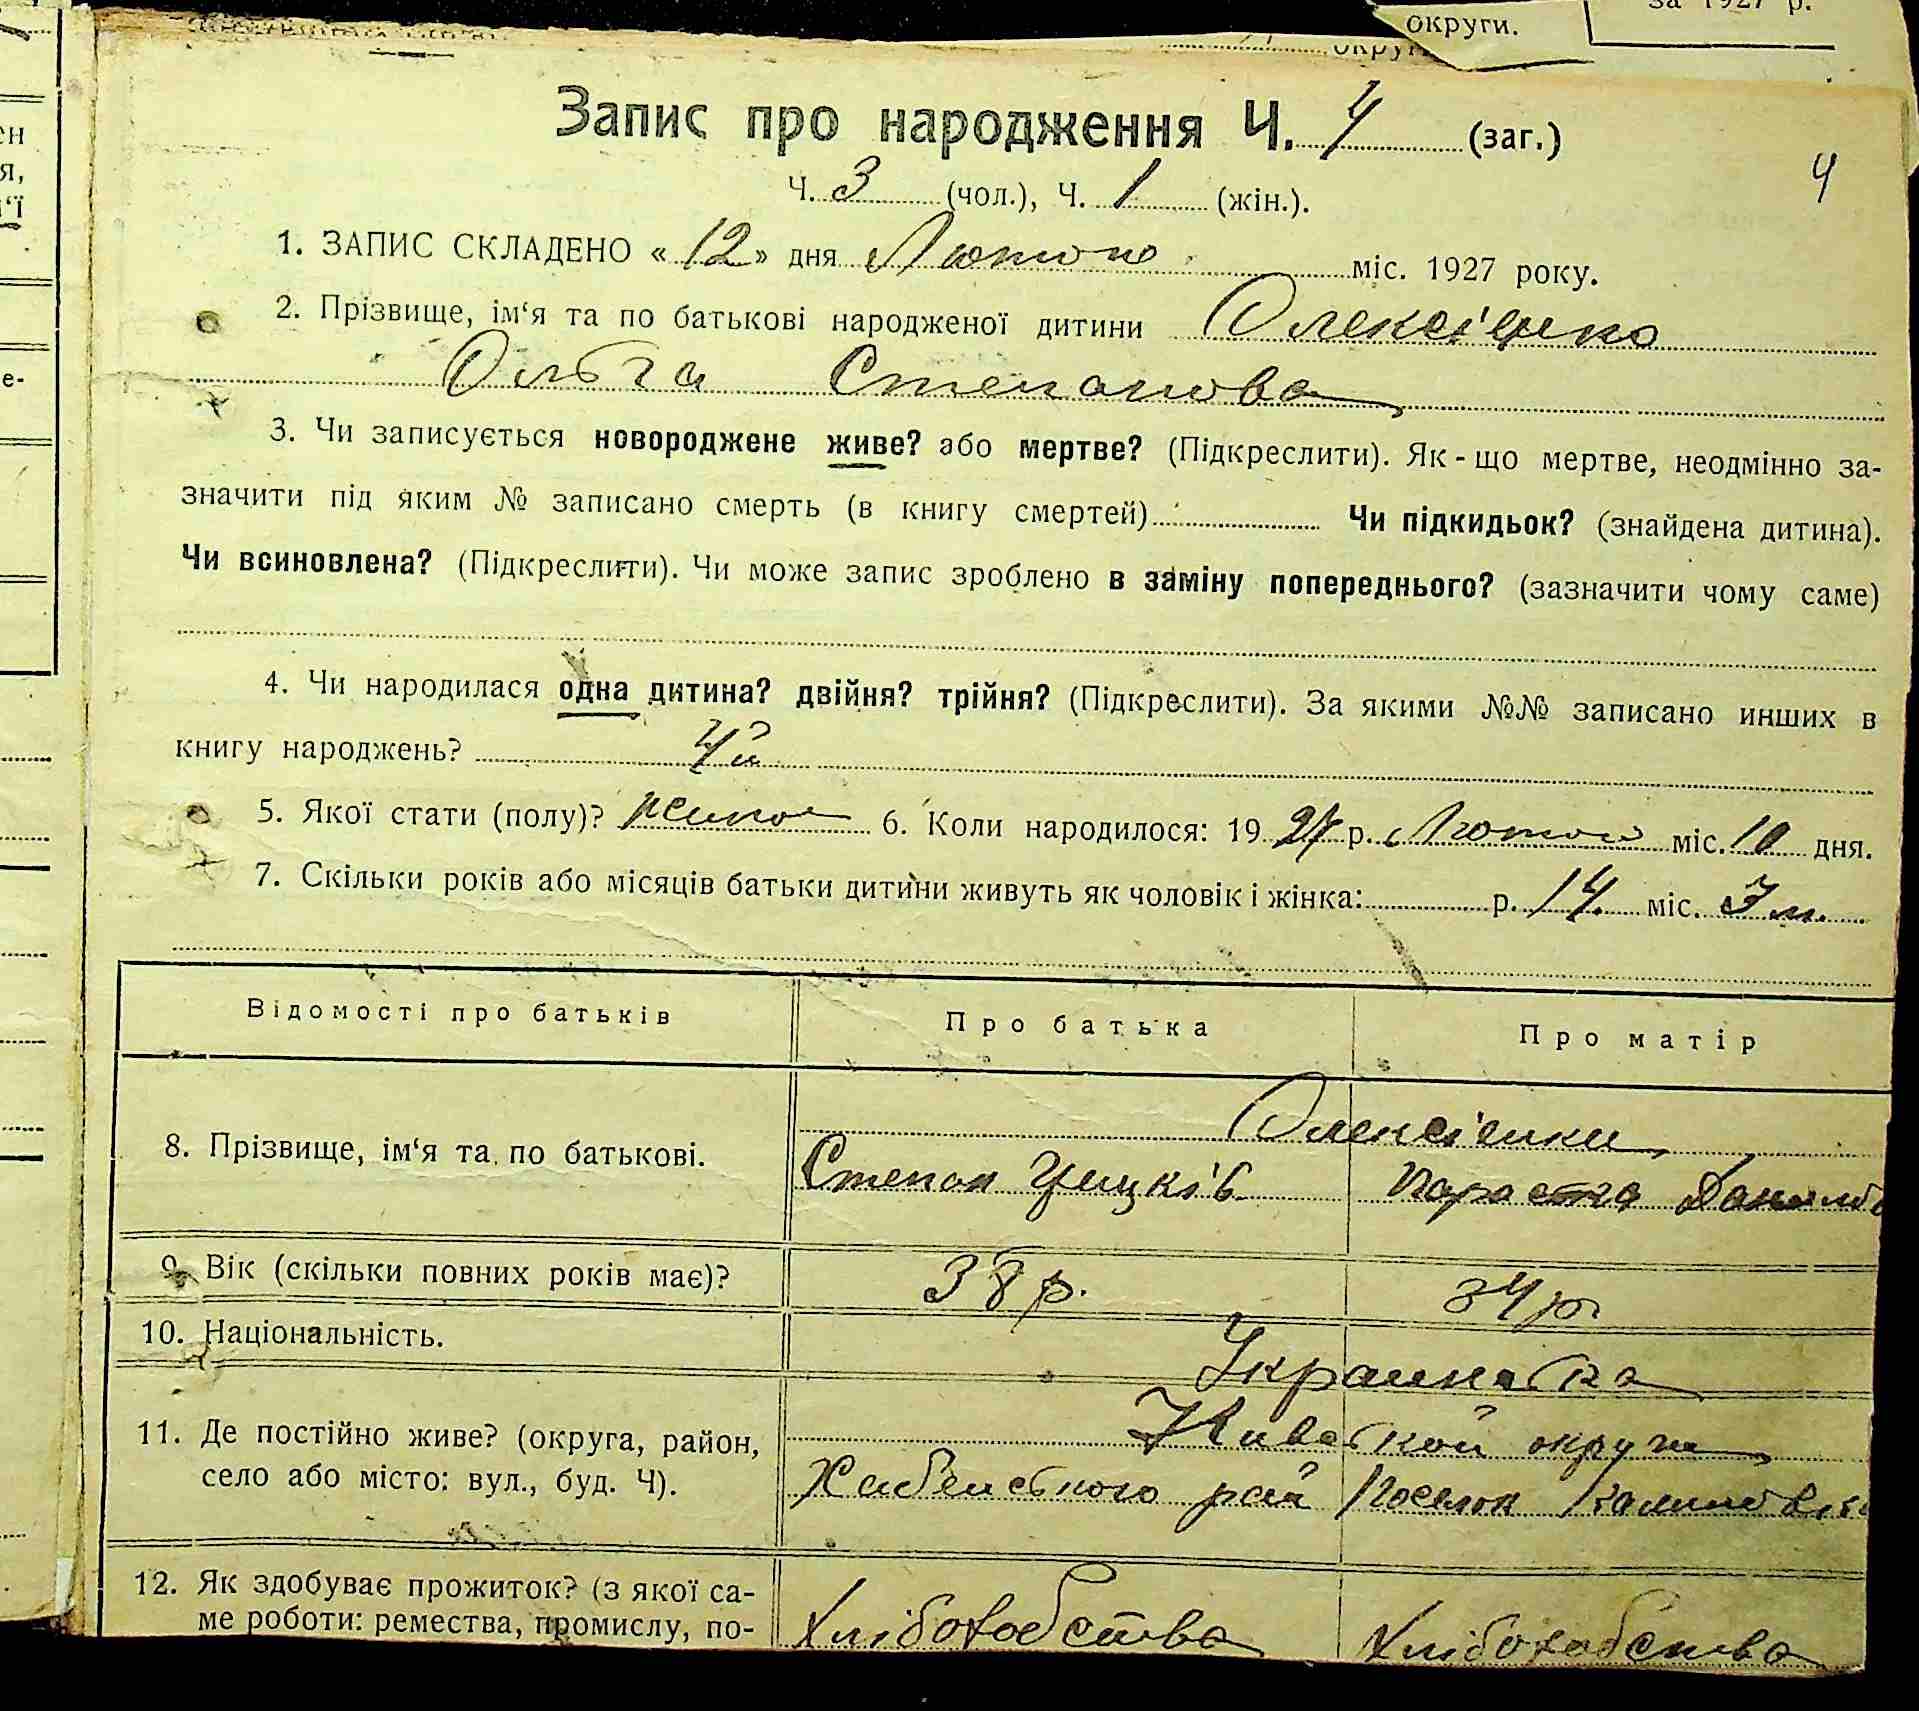 за 1927 р.
округи.
Запис про народження Ч. 4 (заг.)
4
Ч. 3 (чол.), Ч. 1 (жін.).
1. ЗАПИС СКЛАДЕНО « 12 » дня Лютого міс. 1927 року.
2. Прізвище, ім‘я та по батькові народженої дитини Олексієнко
Ольга Степанова
3. Чи записується новороджене живе? або мертве? (Підкреслити). Як-що мертве, неодмінно за-
значити під яким № записано смерть (в книгу смертей) Чи підкидьок? (знайдена дитина).
Чи всиновлена? (Підкреслити). Чи може запис зроблено в заміну попереднього? (зазначити чому саме)
4. Чи народилася одна дитина? двійня? трійня? (Підкреслити). За якими №№ записано инших в
книгу народжень? 4й
5. Якої стати (полу)? жиноч 6. Коли народилося: 1927 р. Лютого міс. 10 дня.
7. Скільки років або місяців батьки дитини живуть як чоловік і жінка: р. 14 міс. 3 м.
Відомості про батьків Про батька Про матір
Олексієнки
8. Прізвище, ім‘я та по батькові. Степан Параска
9. Вік (скільки повних років має)? 38 р. 34 р.
10. Національність. Украинська
Киевской округи
11. Де постійно живе? (округа, район,
село або місто: вул., буд. Ч). Хабенського рай Поселок
12. Як здобуває прожиток? (з якої са-
ме роботи: ремества, промислу, по- Хліборобство Хліборобство